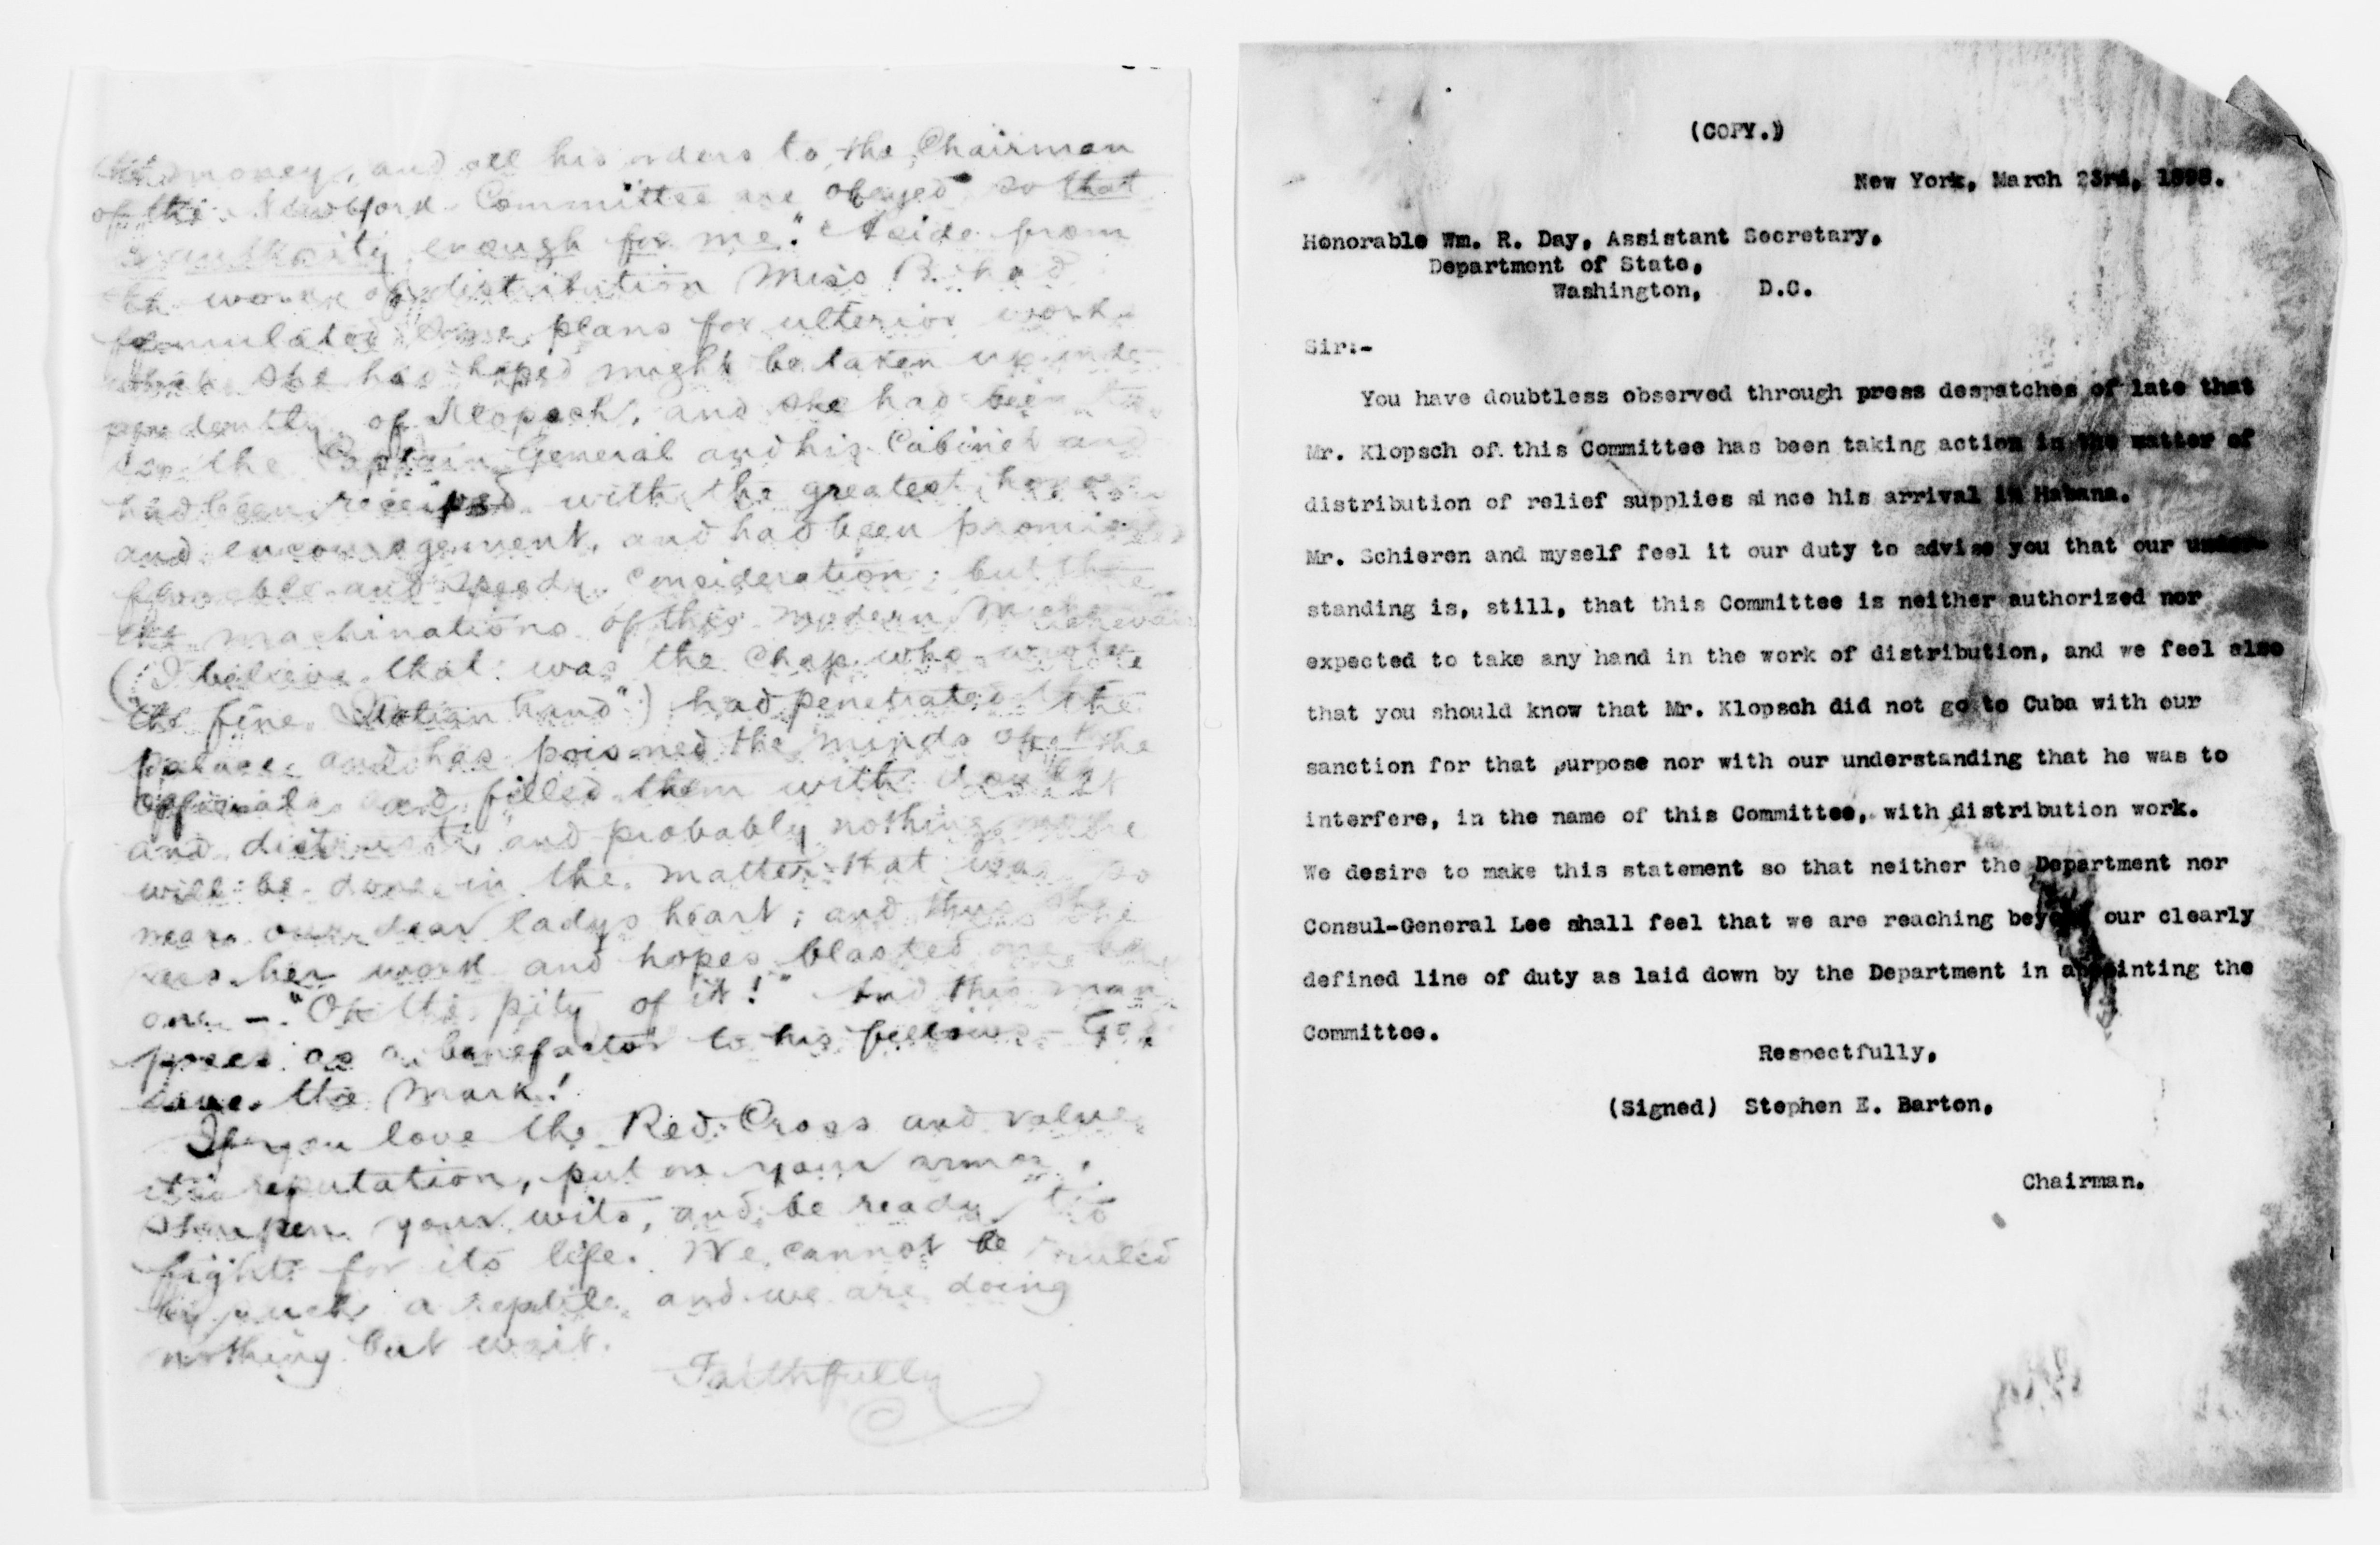 money, and all his orders to the Chairman
of the New York Committee are obeyed so that
is authority enough for me." Aside from
the work of distribution Miss B. had
formulated some plans for ulterior work
which she has hoped might be taken up inde-
pendently of Klopsch, and she had been to
see the Captain General and his Cabinet and
had been received with the greatest honor
and encouragement, and had been promised
favorable and speedy consideration; but the
the machinations of this modern
(I believe that was the chap who wrote
the fine Italian hand") had penetrated the
palace and has poisoned the minds of the
officials and filled them with doubt
and distrust, and probably nothing more
will be done in the matter that was so
near our dear ladys heart; and thus she
sees her work and hopes blasted one by
one — "Oh the pity of it!" And this man
poses as a benefactor to his fellows — God
save the mark!
If you love the Red Cross and value
its reputation, put on your armor,
sharpen your wits, and be ready to
fight for its life. We cannot be ruled
by such a reptile and we are doing
nothing but wait.
Faithfully
(COPY.)
New York, March 23rd, 1898.
Honorable Wm. R. Day, Assistant Secretary,
Department of State,
Washington, D.C.
Sir:-
You have doubtless observed through press despatches of late that
Mr. Klopsch of this Committee has been taking action in the matter of
distribution of relief supplies since his arrival in Habana.
Mr. Schieren and myself feel it our duty to advise you that our under-
standing is, still, that this Committee is neither authorized nor
expected to take any hand in the work of distribution, and we feel also
that you should know that Mr. Klopsch did not go to Cuba with our
sanction for that purpose nor with our understanding that he was to
interfere, in the name of this Committee, with distribution work.
We desire to make this statement so that neither the Department nor
Consul-General Lee shall feel that we are reaching beyond our clearly
defined line of duty as laid down by the Department in appointing the
Committee.
Respectfully,
(Signed) Stephen E. Barton,
Chairman.